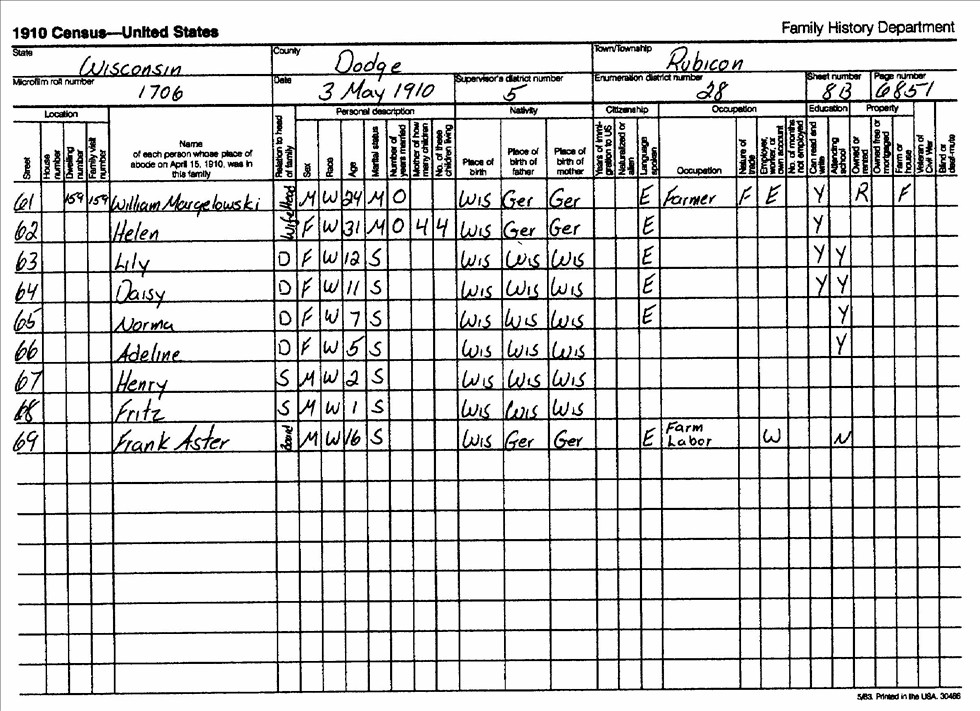 1910 Census—United States
Family History Department
State Wisconsin County Dodge Town/Township Rubicon
Microfilm roll number 1706 Date 3 May 1910 Supervisor's district number 5 Enumeration district number 28 Sheet number 8B Page number 6851
Location Personal description Nativity Citizenship Occupation Education Property
Street House number Dwelling number Family visit number Name of each person whose place of abode on April 15, 1910, was in this family Relation to head of family Sex Race Age Marital status Number of years married Mother of how many children No. of these children living Place of birth Place of birth of father Place of birth of mother Years of immi-gration to US Naturalized or Language spoken Occupation Nature of trade Employer, worker, or own account No. of months not employed Can read and write Attending school Owned or rented Owned free or mortgaged Farm or house Veteran of Civil War Blind or deaf-mute
61 159 159 William Margelowski Head M W 24 M 0 Wis Ger Ger E Farmer F E Y R F
62 Helen Wife F W 31 M 0 4 4 Wis Ger Ger E Y
63 Lily D F W 12 S Wis Wis Wis E Y Y
64 Daisy D F W 11 S Wis Wis Wis E Y Y
65 Norma D F W 7 S Wis Wis Wis E Y
66 Adeline D F W 5 S Wis Wis Wis Y
67 Henry S M W 2 S Wis Wis Wis
68 Fritz S M W 1 S Wis Wis Wis
69 Frank Aster Board M W 16 S Wis Ger Ger E Farm Labor W N
5/83. Printed in the USA. 30466